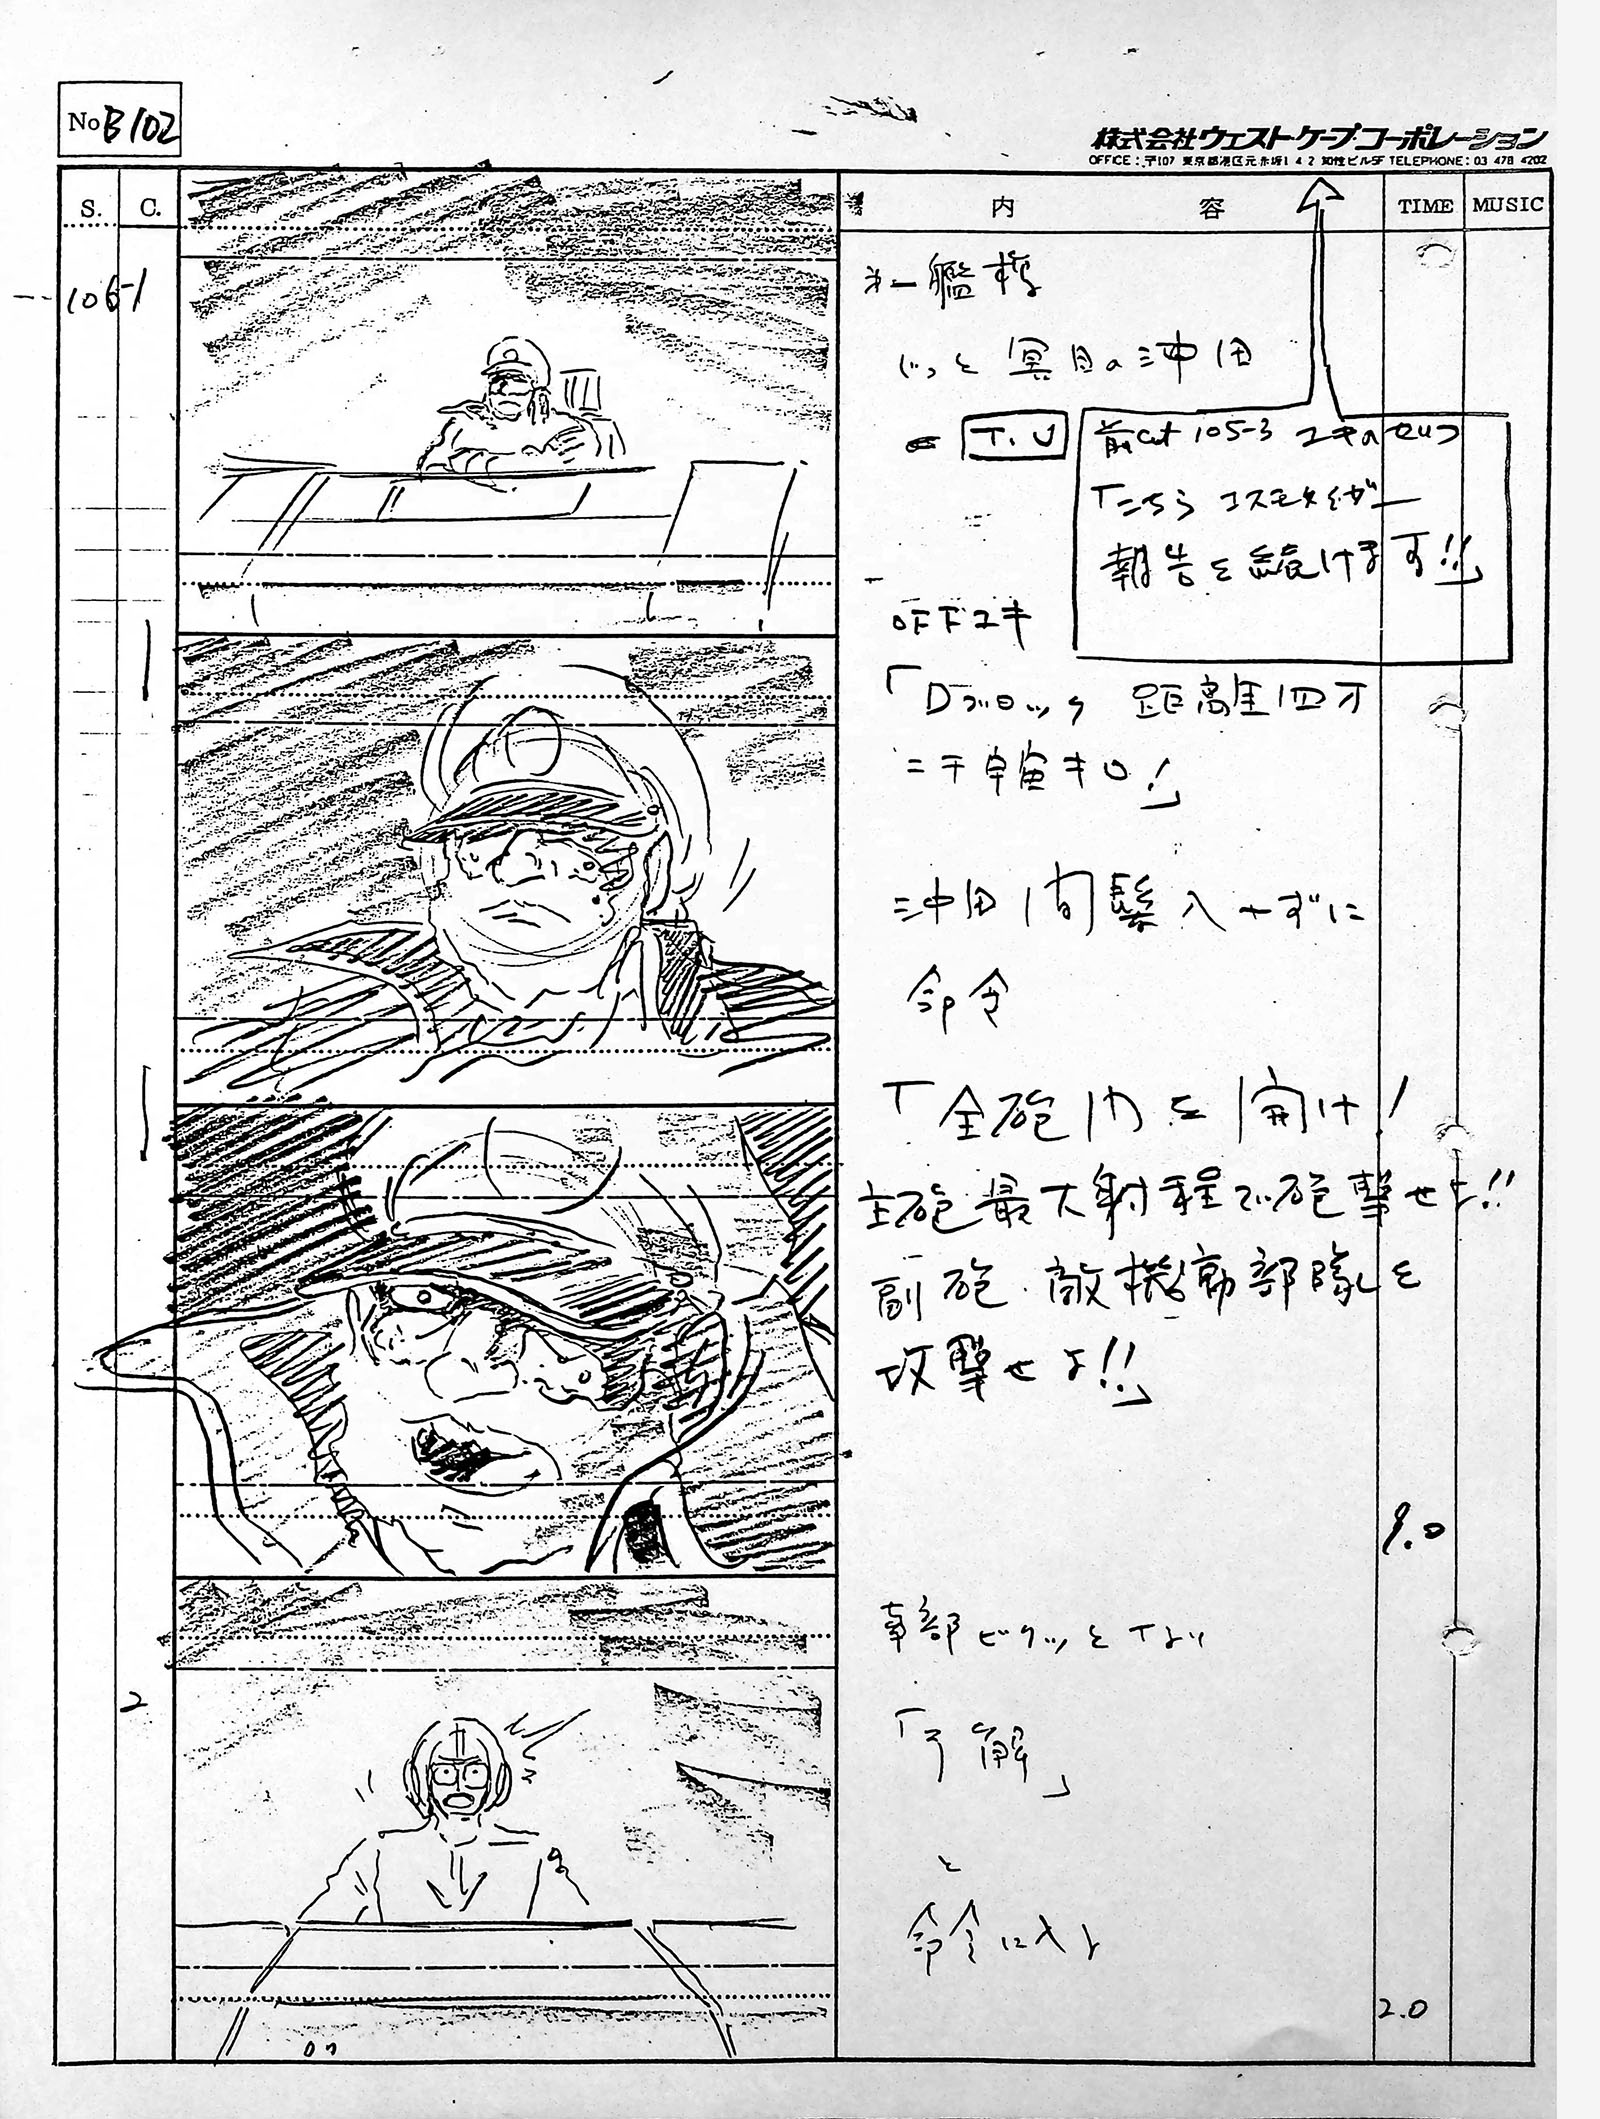 No B102
株式会社ウエスト・ケープ・コーポレーション
OFFICE:〒107 東京都港区元赤坂1 4 2 TELEPHONE:03 478 4202
S. C. 内容 TIME MUSIC
106-1
オ一艦橋
じっと冥目の沖田
T.U
前cut 105-3 ユキのセリフ
「こちらコスモタイガー
報告を続けます!!」
OFFユキ
「Dブロック 距離四万
二千宇宙キロ!」
沖田間髪入れずに
命令
「全砲門を開け!
主砲最大射程で砲撃せよ!!
副砲・敵機動部隊を
攻撃せよ!!」
9.0
2
幹部ビクッとなり
「了解」
と
命令に
2.0